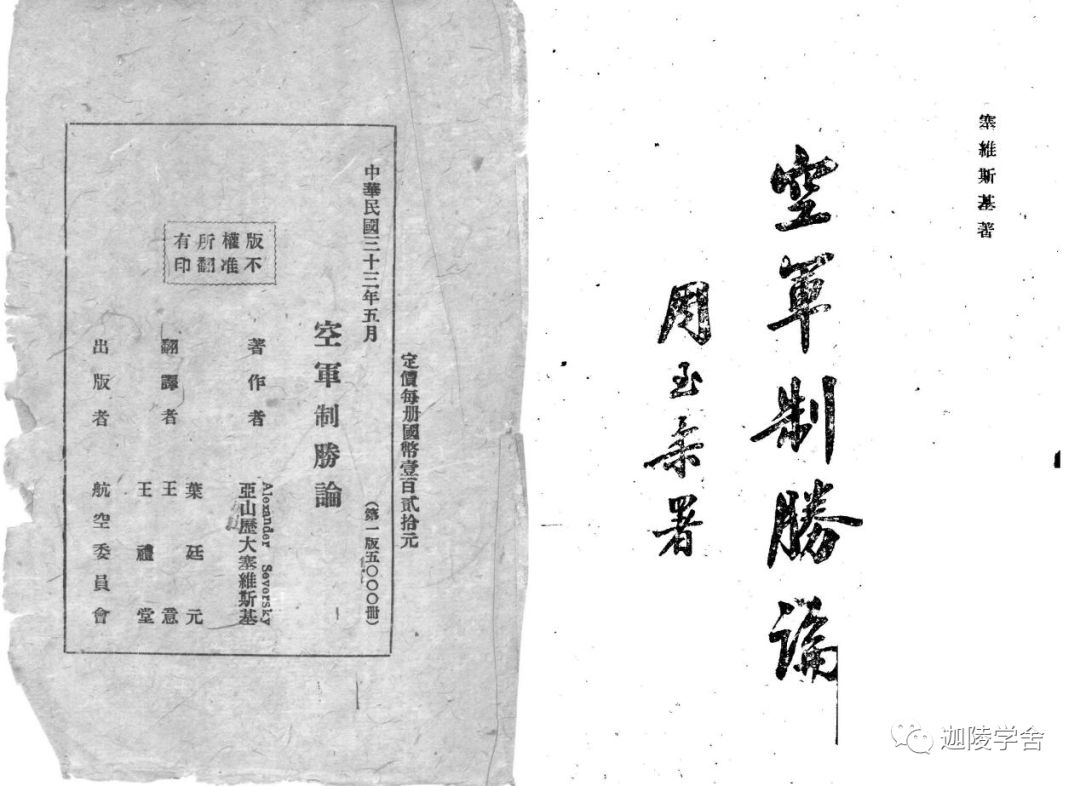 定價每册國幣壹百貳拾元
中華民國三十三年五月
(第一版五〇〇〇冊)
空軍制勝論
版權所有
不准翻印
著作者
Alexander Seversky
亞山歷大塞維斯基
翻譯者
葉廷元
王意
王禮堂
出版者
航空委員會
塞維斯基著
空軍制勝論
周至柔署
迦陵学舍